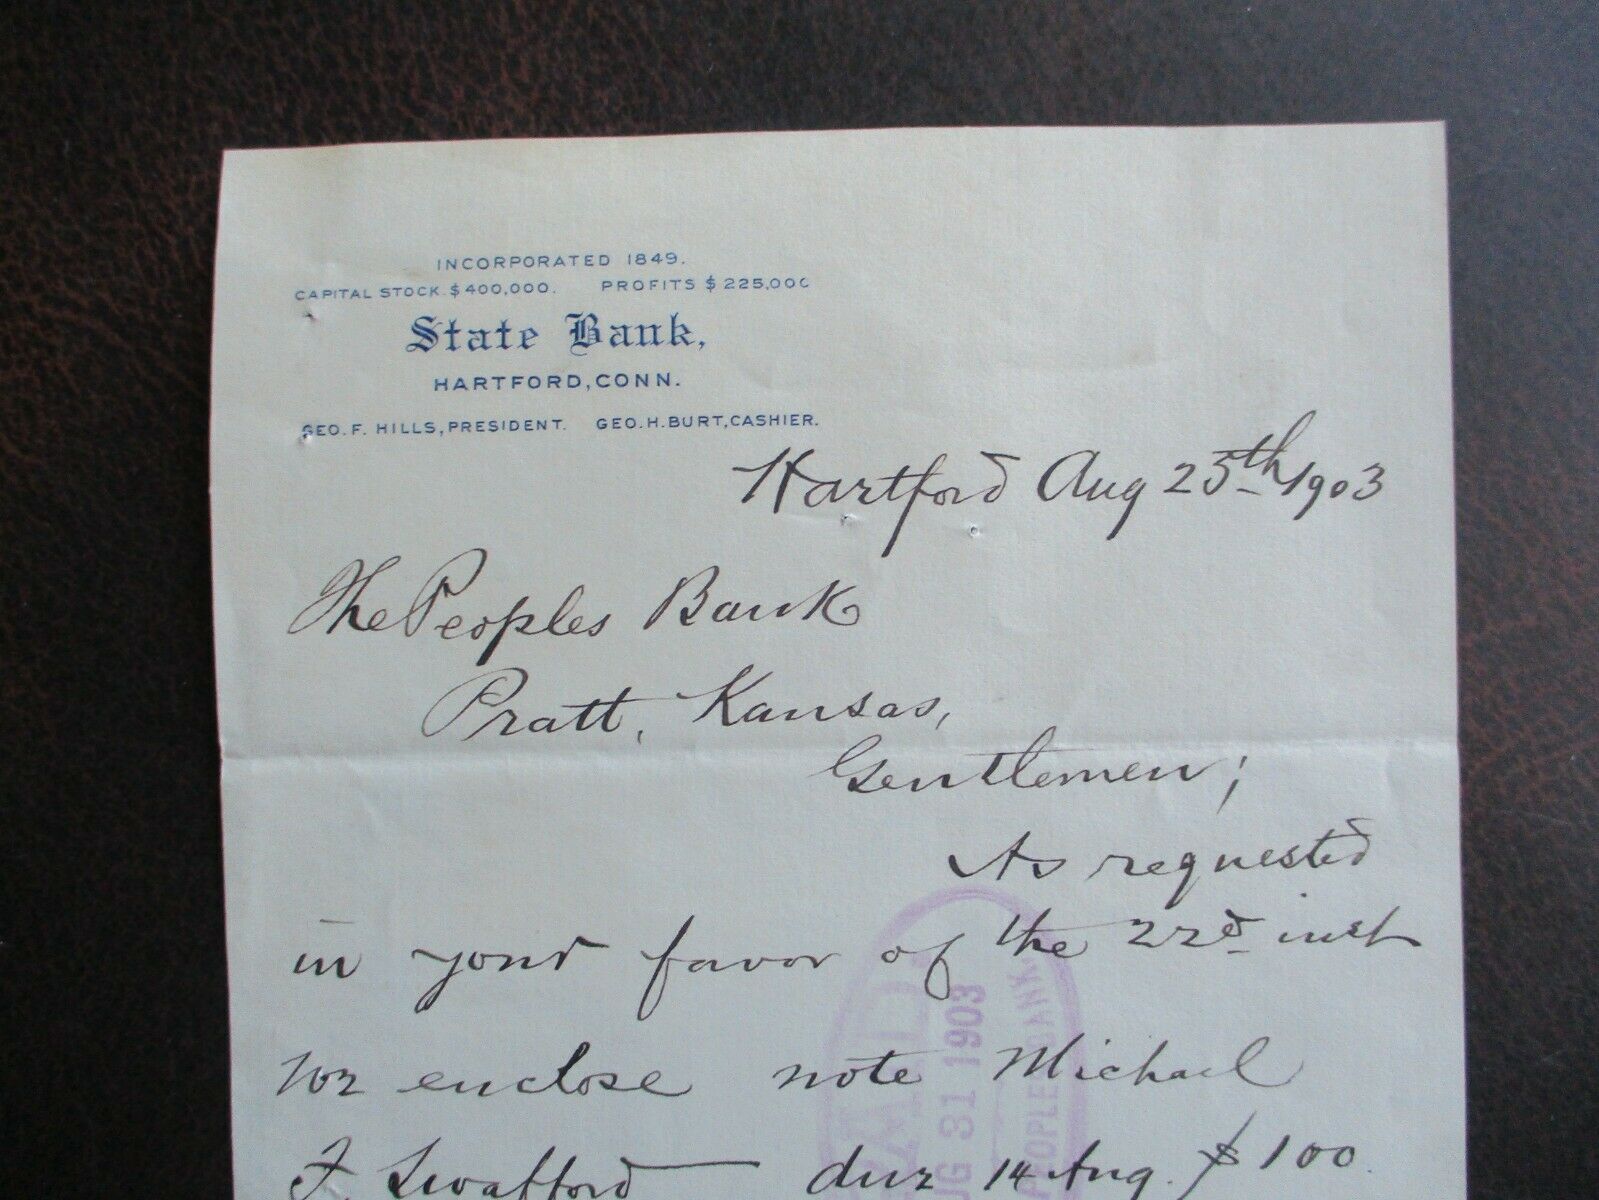 INCORPORATED 1849.
CAPITAL STOCK. $400,000. PROFITS $225,000
State Bank,
HARTFORD, CONN.
GEO. F. HILLS, PRESIDENT. GEO. H. BURT, CASHIER.
Hartford Aug 25th 1903
The Peoples Bank
Pratt, Kansas,
Gentlemen;
As requested
in your favor of the 22nd inst
we enclose note Michael
F. Swafford due 14 Aug. $100
PAID
AUG 31 1903
PEOPLES BANK